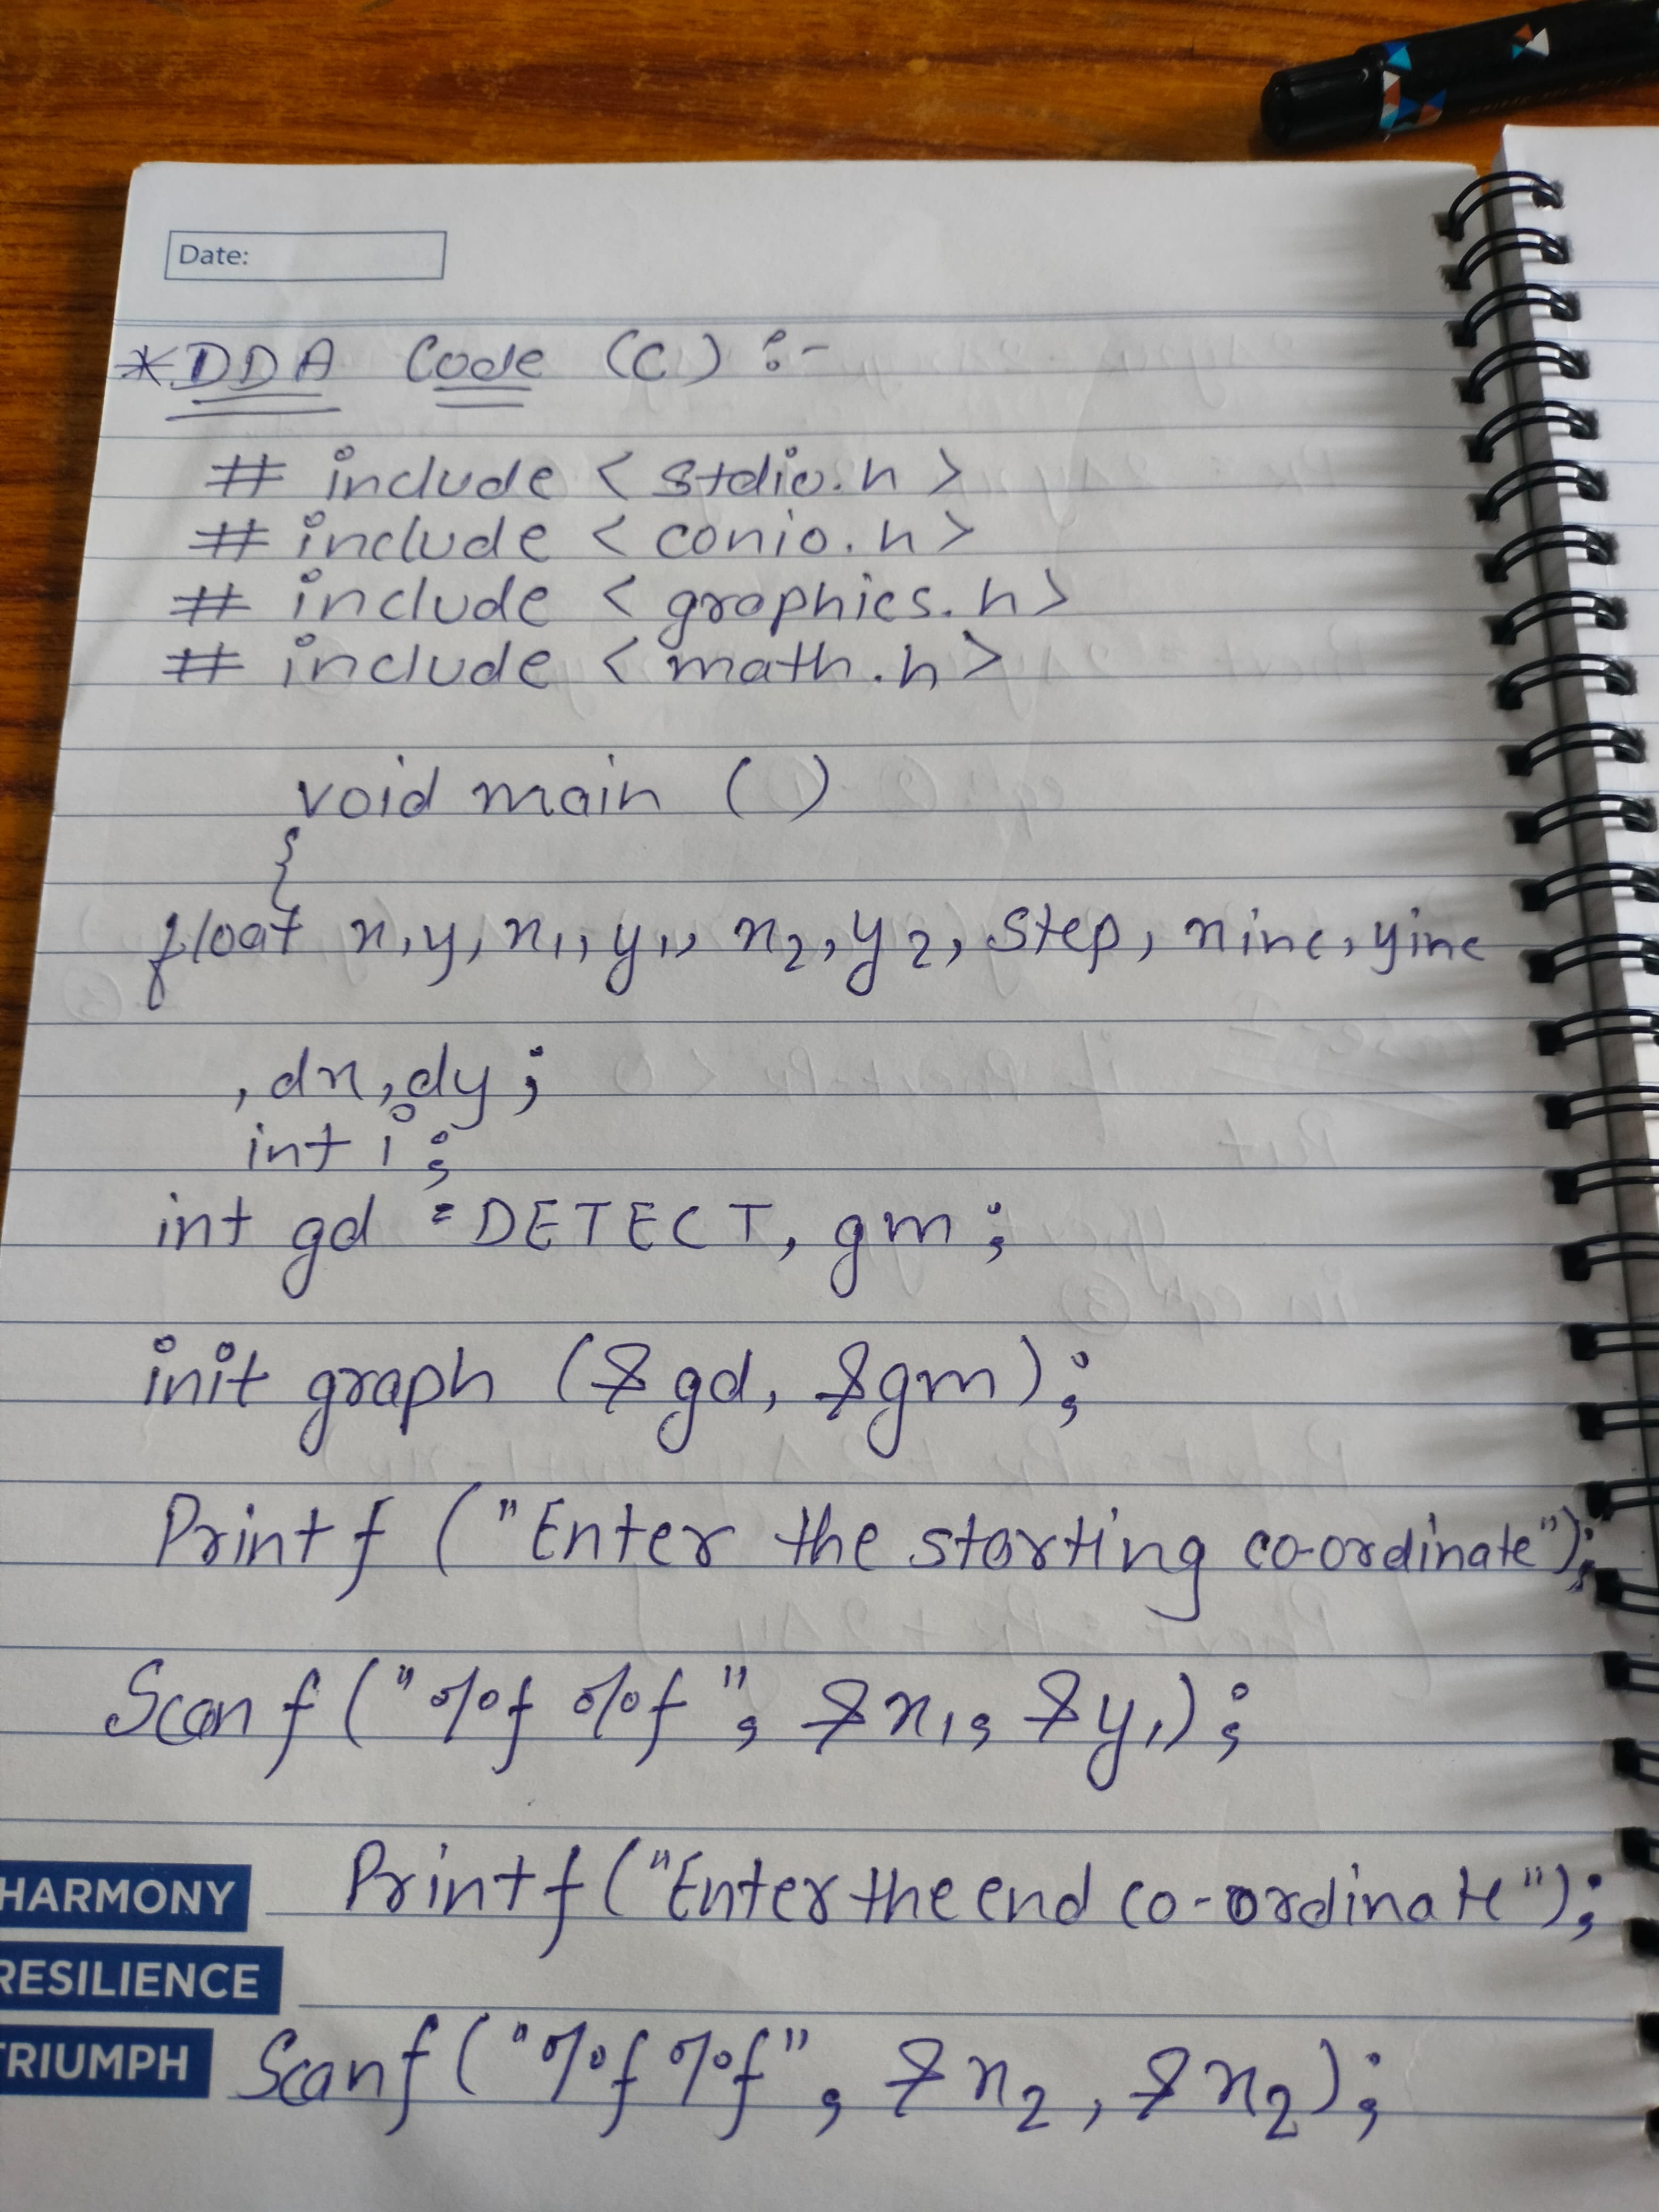 Date:
*DDA Code (C) :-
# include < stdio.h >
# include < conio.h >
# include < graphics.h >
# include < math.h >
void main ( )
{
float x, y, x1, y1, x2, y2, step, xinc, yinc
, dx, dy ;
int i ;
int gd = DETECT, gm ;
init graph (& gd, &gm) ;
Printf ("Enter the starting co-ordinate");
Scanf ("%f %f", &x1, &y1) ;
HARMONY Printf ("Enter the end co-ordinate") ;
RESILIENCE
TRIUMPH Scanf ("%f %f", &x2, &x2) ;